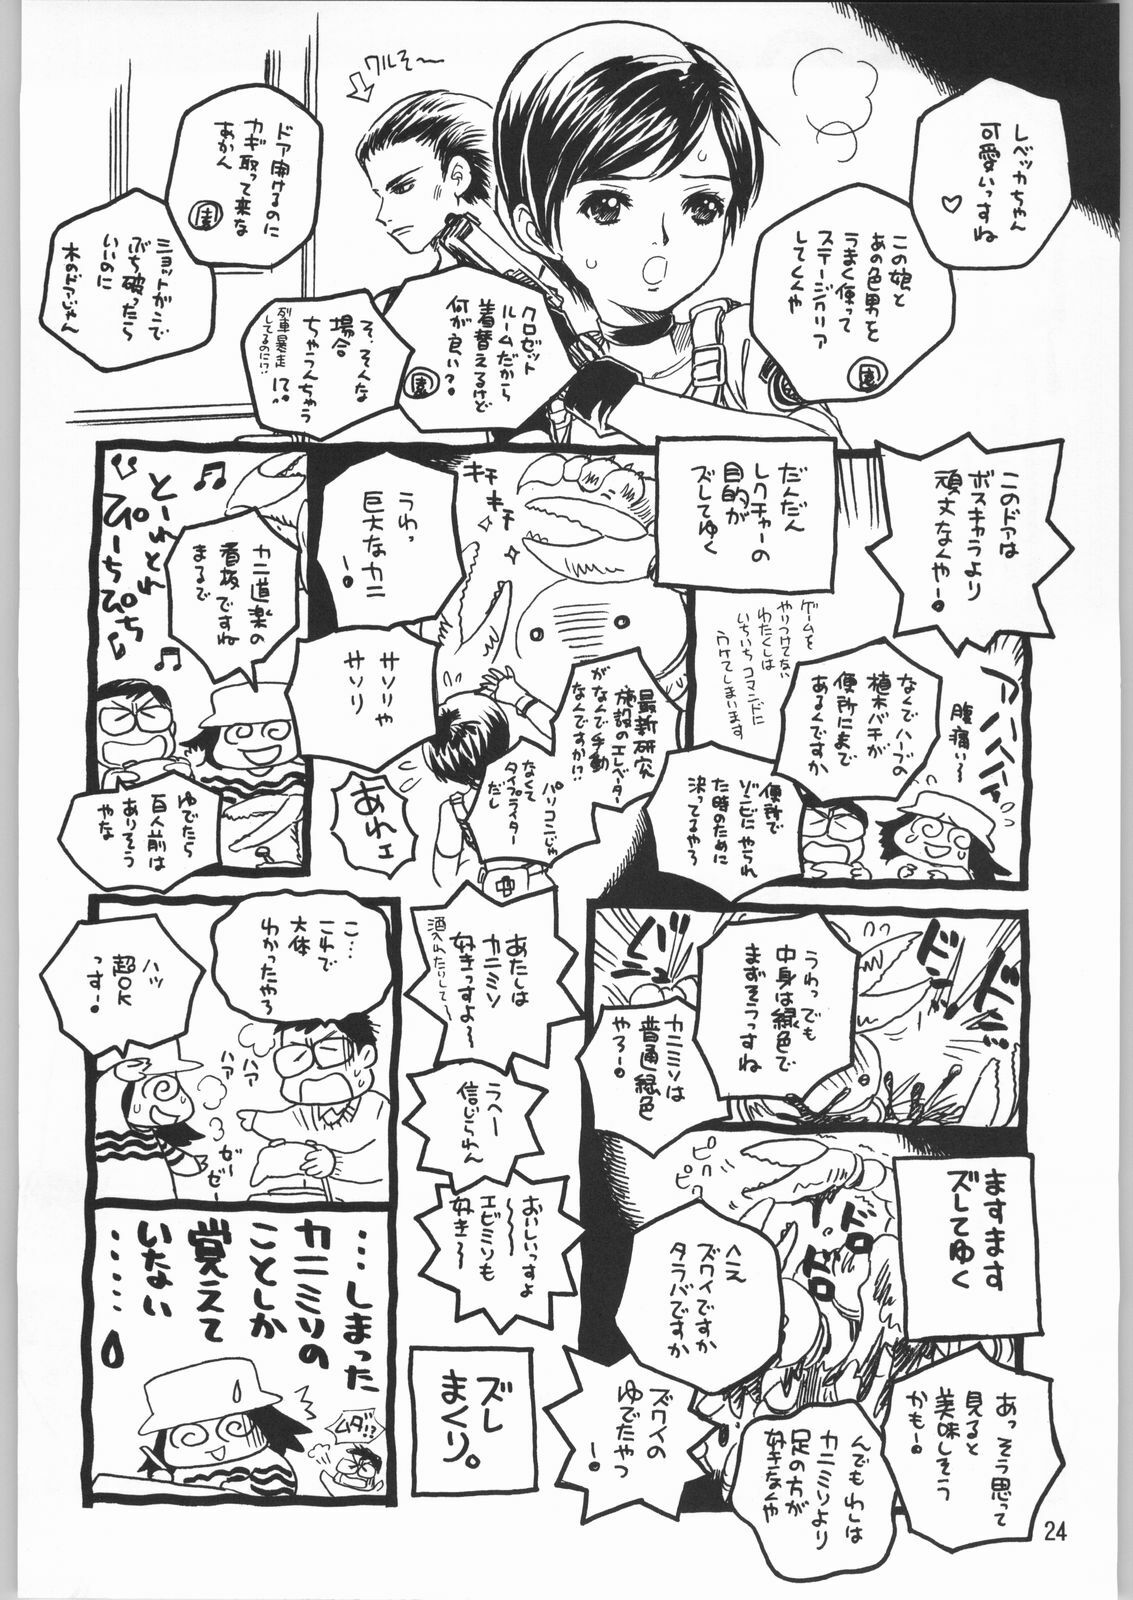 レベッカちゃん
可愛いっすね
♡
この娘と
あの色男を
うまく使って
ステージクリア
してくんや
園
ワルそ〜
クロゼット
ルームだから
着替えるけど
何が良い?
園
そ、そんな
場合
ちゃうんちゃう
!?。
列車暴走
してるのに!?
ドア開けるのに
カギ取って来な
あかん
園
ショットガンで
ぶち破ったら
いいのに
木のドアじゃん
このドアは
ボスキャラより
頑丈なんや!
アハハハハハ
腹痛い〜
なんでハーブの
植木バチが
便所にまで
あるんですか
便所で
ゾンビにやられ
た時のために
決ってるやろ
ゲームを
やりつけてない
わたくしは
いちいちコマンドに
ウケてしまいます
だんだん
レクチャーの
目的が
ズレてゆく
最新研究
施設のエレベーター
がなんで手動
なんですか!?
パソコンじゃ
なくて
タイプライター
だし
キチ
キチ
うわっ
巨大なカニ
!
サソリや
サソリ
あれェ
とーれとれ
ぴーちぴち♪
カニ道楽の
看板ですね
まるで
ゆでたら
百人前は
ありそう
やな
ドドドーン
うわっでも
中身は緑色で
まずそうっすね
カニミソは
普通緑色
やろー!
あたしは
カニミソ
好きっすよ〜
酒入れたりして〜
うへー
信じらんん
おいしいっすよ
〜〜
エビミソも
好き〜
ますます
ズレてゆく
ピク
ピク
ドロ
ドロ
ヘエ
ズワイですか
タラバですか
ズワイの
ゆでたやつ
!
あっそう思って
見ると
美味しそう
かも!
んでもわしは
カニミソより
足の方が
好きなんや
ズレ
まくり。
こ…
これで
大体
わかったやろ
ハッ
超OK
っす!
ハア
ハア
ゼー
ゼー
…しまった
カニミソの
ことしか
覚えて
いない
……
ムダ!?
24